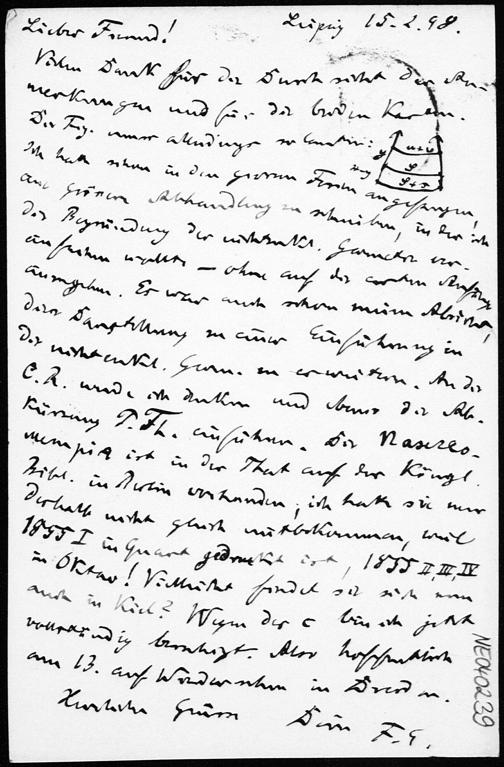 Leipzig 15.2.98.
Lieber Freund!
Vielen Dank für die Durchsicht der An-
merkungen und für die beiden Karten.
Die Fig. muss allerdings so lauten:
Ich hatte schon in den grossen Ferien angefangen,
eine grössere Abhandlung zu schreiben, in der ich
die Begründung der nichteukl. Geometrie vor-
führen wollte — ohne auf die ersten Anfänge
einzugehen. Es war auch schon meine Absicht,
diese Darstellung zu einer Einführung in
die nichteukl. Geom. zu erweitern. An die
C. R. werde ich denken und ebenso die Ab-
kürzung P. Th. einführen. Die
ist in der That auf der Königl.
Bibl. in Berlin vorhanden; ich hatte sie nur
deshalb nicht gleich mitbekommen, weil
1855 I in Quart gedruckt ist, 1855 II, III, IV
in Oktav! Vielleicht findet sie sich nun
auch in Kiel? Wegen der c bin ich jetzt
vollständig beruhigt. Also hoffentlich
am 13. auf Wiedersehen in Dresden.
Herzliche Grüsse Dein F.
NE040239